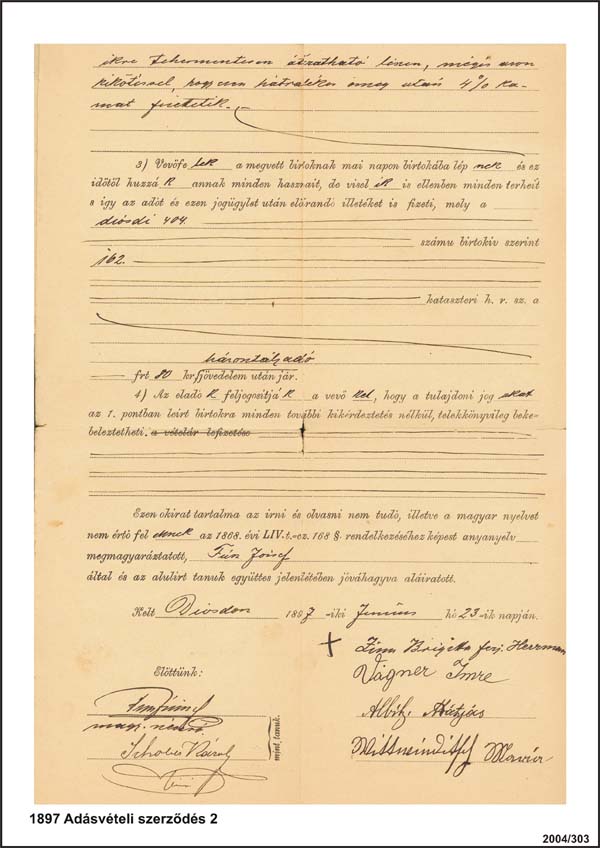 ikre tehermentesen átiratható leszen, mégis azon
kikötéssel, hogy a hátralékos összeg után 4% ka-
mat fizetetik.
3) Vevőfelek a megvett birtoknak mai napon birtokába lépnek és ez
időtől huzzák annak minden hasznait, de viselik is ellenben minden terheit
s igy az adót és ezen jogügylet után előrandó illetéket is fizeti, mely a
diósdi 404.
számu birtokiv szerint
162.
kataszteri h. r. sz. a
házosztályadó
frt 80 kr jövedelem után jár.
4) Az eladók feljogositják a vevőket, hogy a tulajdoni jog
az 1. pontban leirt birtokra minden további kikérdeztetés nélkül, telekkönyvileg beke-
beleztetheti. a vételár lefizetése
Ezen okirat tartalma az irni és olvasni nem tudó, illetve a magyar nyelvet
nem értő feleknek az 1868. évi LIV. t.-cz. 168 §. rendelkezéséhez képest anyanyelv
megmagyaráztatott, József
által és az alulirt tanuk együttes jelenlétében jóváhagyva aláiratott.
Kelt Diósdon 1897-iki Junius hó 23-ik napján.
Brigitta férj. Herrman
Előttünk:
Vágner Imre
Mátyás
Károly
mint tanuk.
Mária
1897 Adásvételi szerződés 2
2004/303